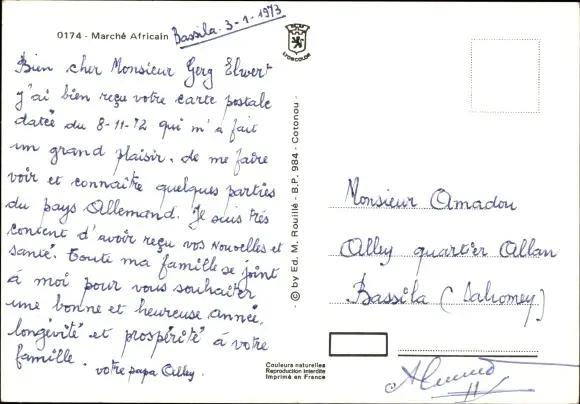 0174 - Marché Africain
Bassila. 3-1-1973
LYONCOLOR
Bien cher Monsieur Gerg Elwert
j'ai bien reçu votre carte postale
datée du 8-11-72 qui m'a fait
un grand plaisir. de me faire
voir et connaître quelques parties
du pays Allemand. Je suis très
content d'avoir reçu vos Nouvelles et
santé. Toute ma famille se joint
à moi pour vous souhaiter
une bonne et heureuse année,
longévité et prospérité à votre
famille.
votre papa Alley.
- © by Ed. M. Rouillé - B.P. 984 - Cotonou -
Monsieur Amadou
Alley quartier Allan
Bassila (Dahomey)
Couleurs naturelles
Reproduction interdite
Imprimé en France